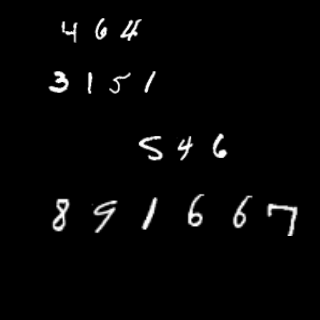 464
3151
546
891667